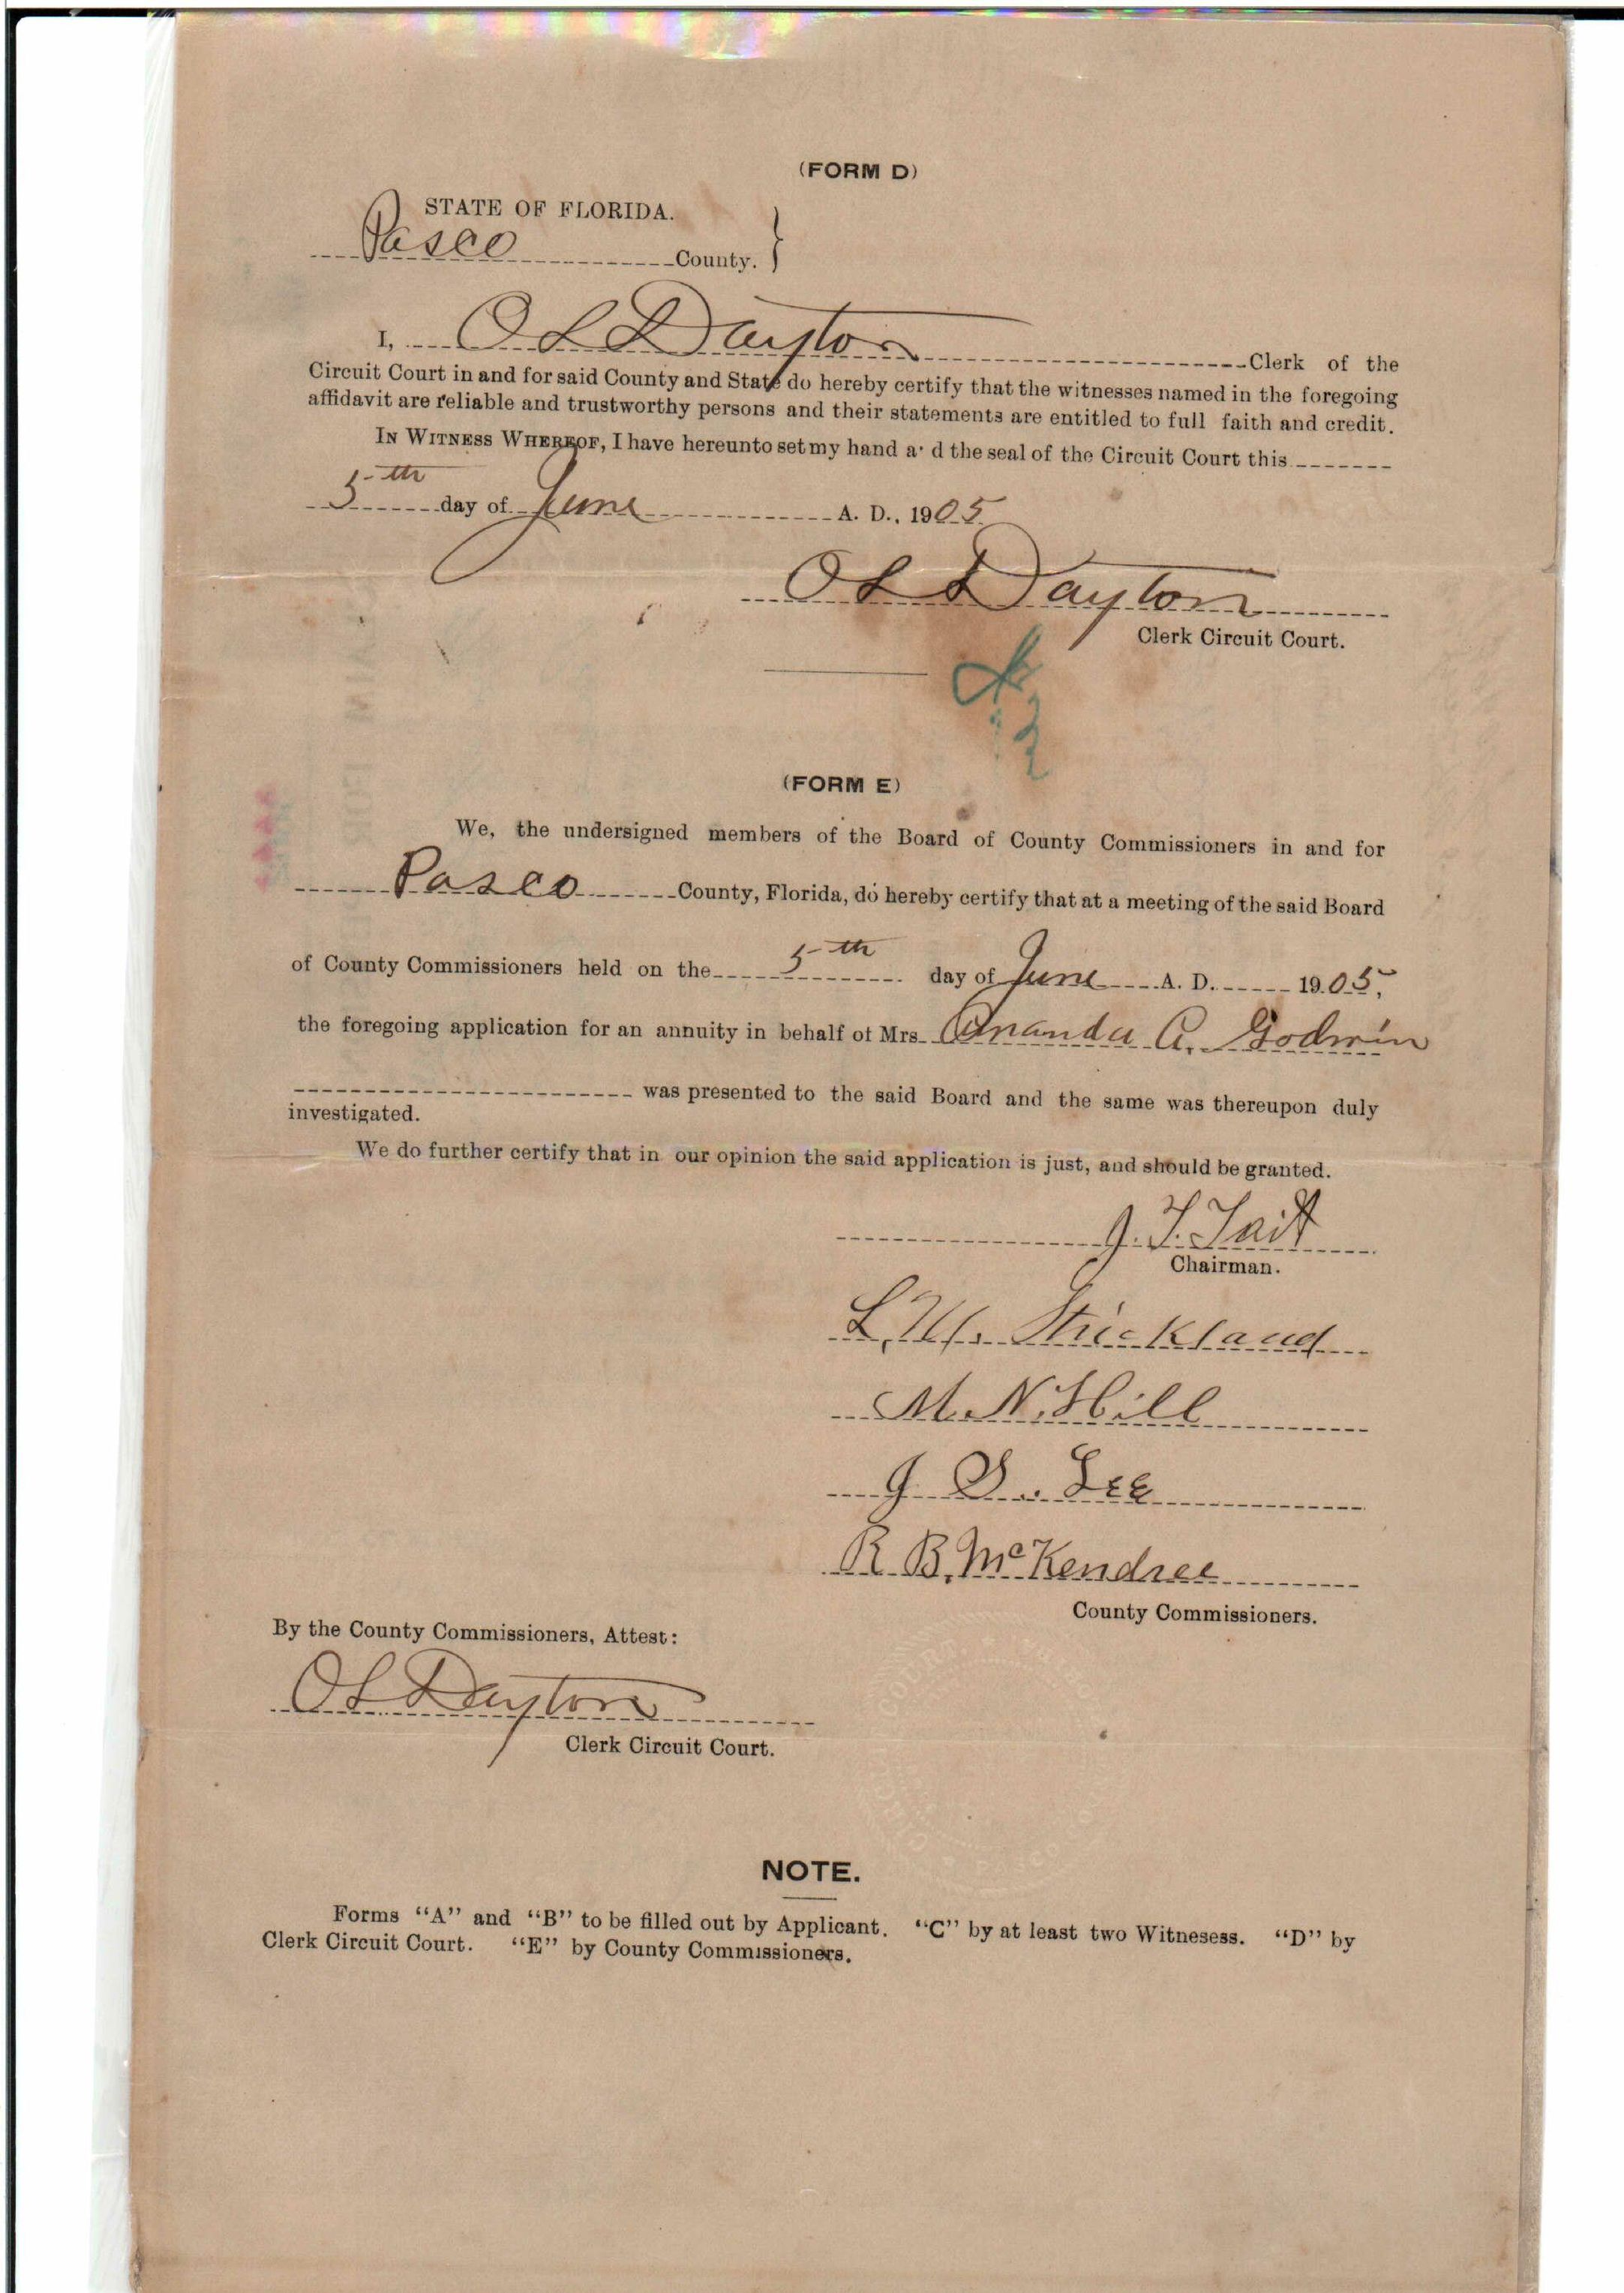 (FORM D)
STATE OF FLORIDA.
Pasco County. }
I, O L Dayton Clerk of the
Circuit Court in and for said County and State do hereby certify that the witnesses named in the foregoing
affidavit are reliable and trustworthy persons and their statements are entitled to full faith and credit.
IN WITNESS WHEREOF, I have hereunto set my hand a d the seal of the Circuit Court this
5th day of June A. D., 1905
O L Dayton
Clerk Circuit Court.
(FORM E)
We, the undersigned members of the Board of County Commissioners in and for
Pasco County, Florida, do hereby certify that at a meeting of the said Board
of County Commissioners held on the 5th day of June A. D. 1905,
the foregoing application for an annuity in behalf of Mrs Amanda A. Godwin
was presented to the said Board and the same was thereupon duly
investigated.
We do further certify that in our opinion the said application is just, and should be granted.
J. T. Tait
Chairman.
L. W. Strickland
M. N. Hill
J S. Lee
R B. McKendree
County Commissioners.
By the County Commissioners, Attest:
O L Dayton
Clerk Circuit Court.
NOTE.
Forms "A" and "B" to be filled out by Applicant. "C" by at least two Witnesess. "D" by
Clerk Circuit Court. "E" by County Commissioners.